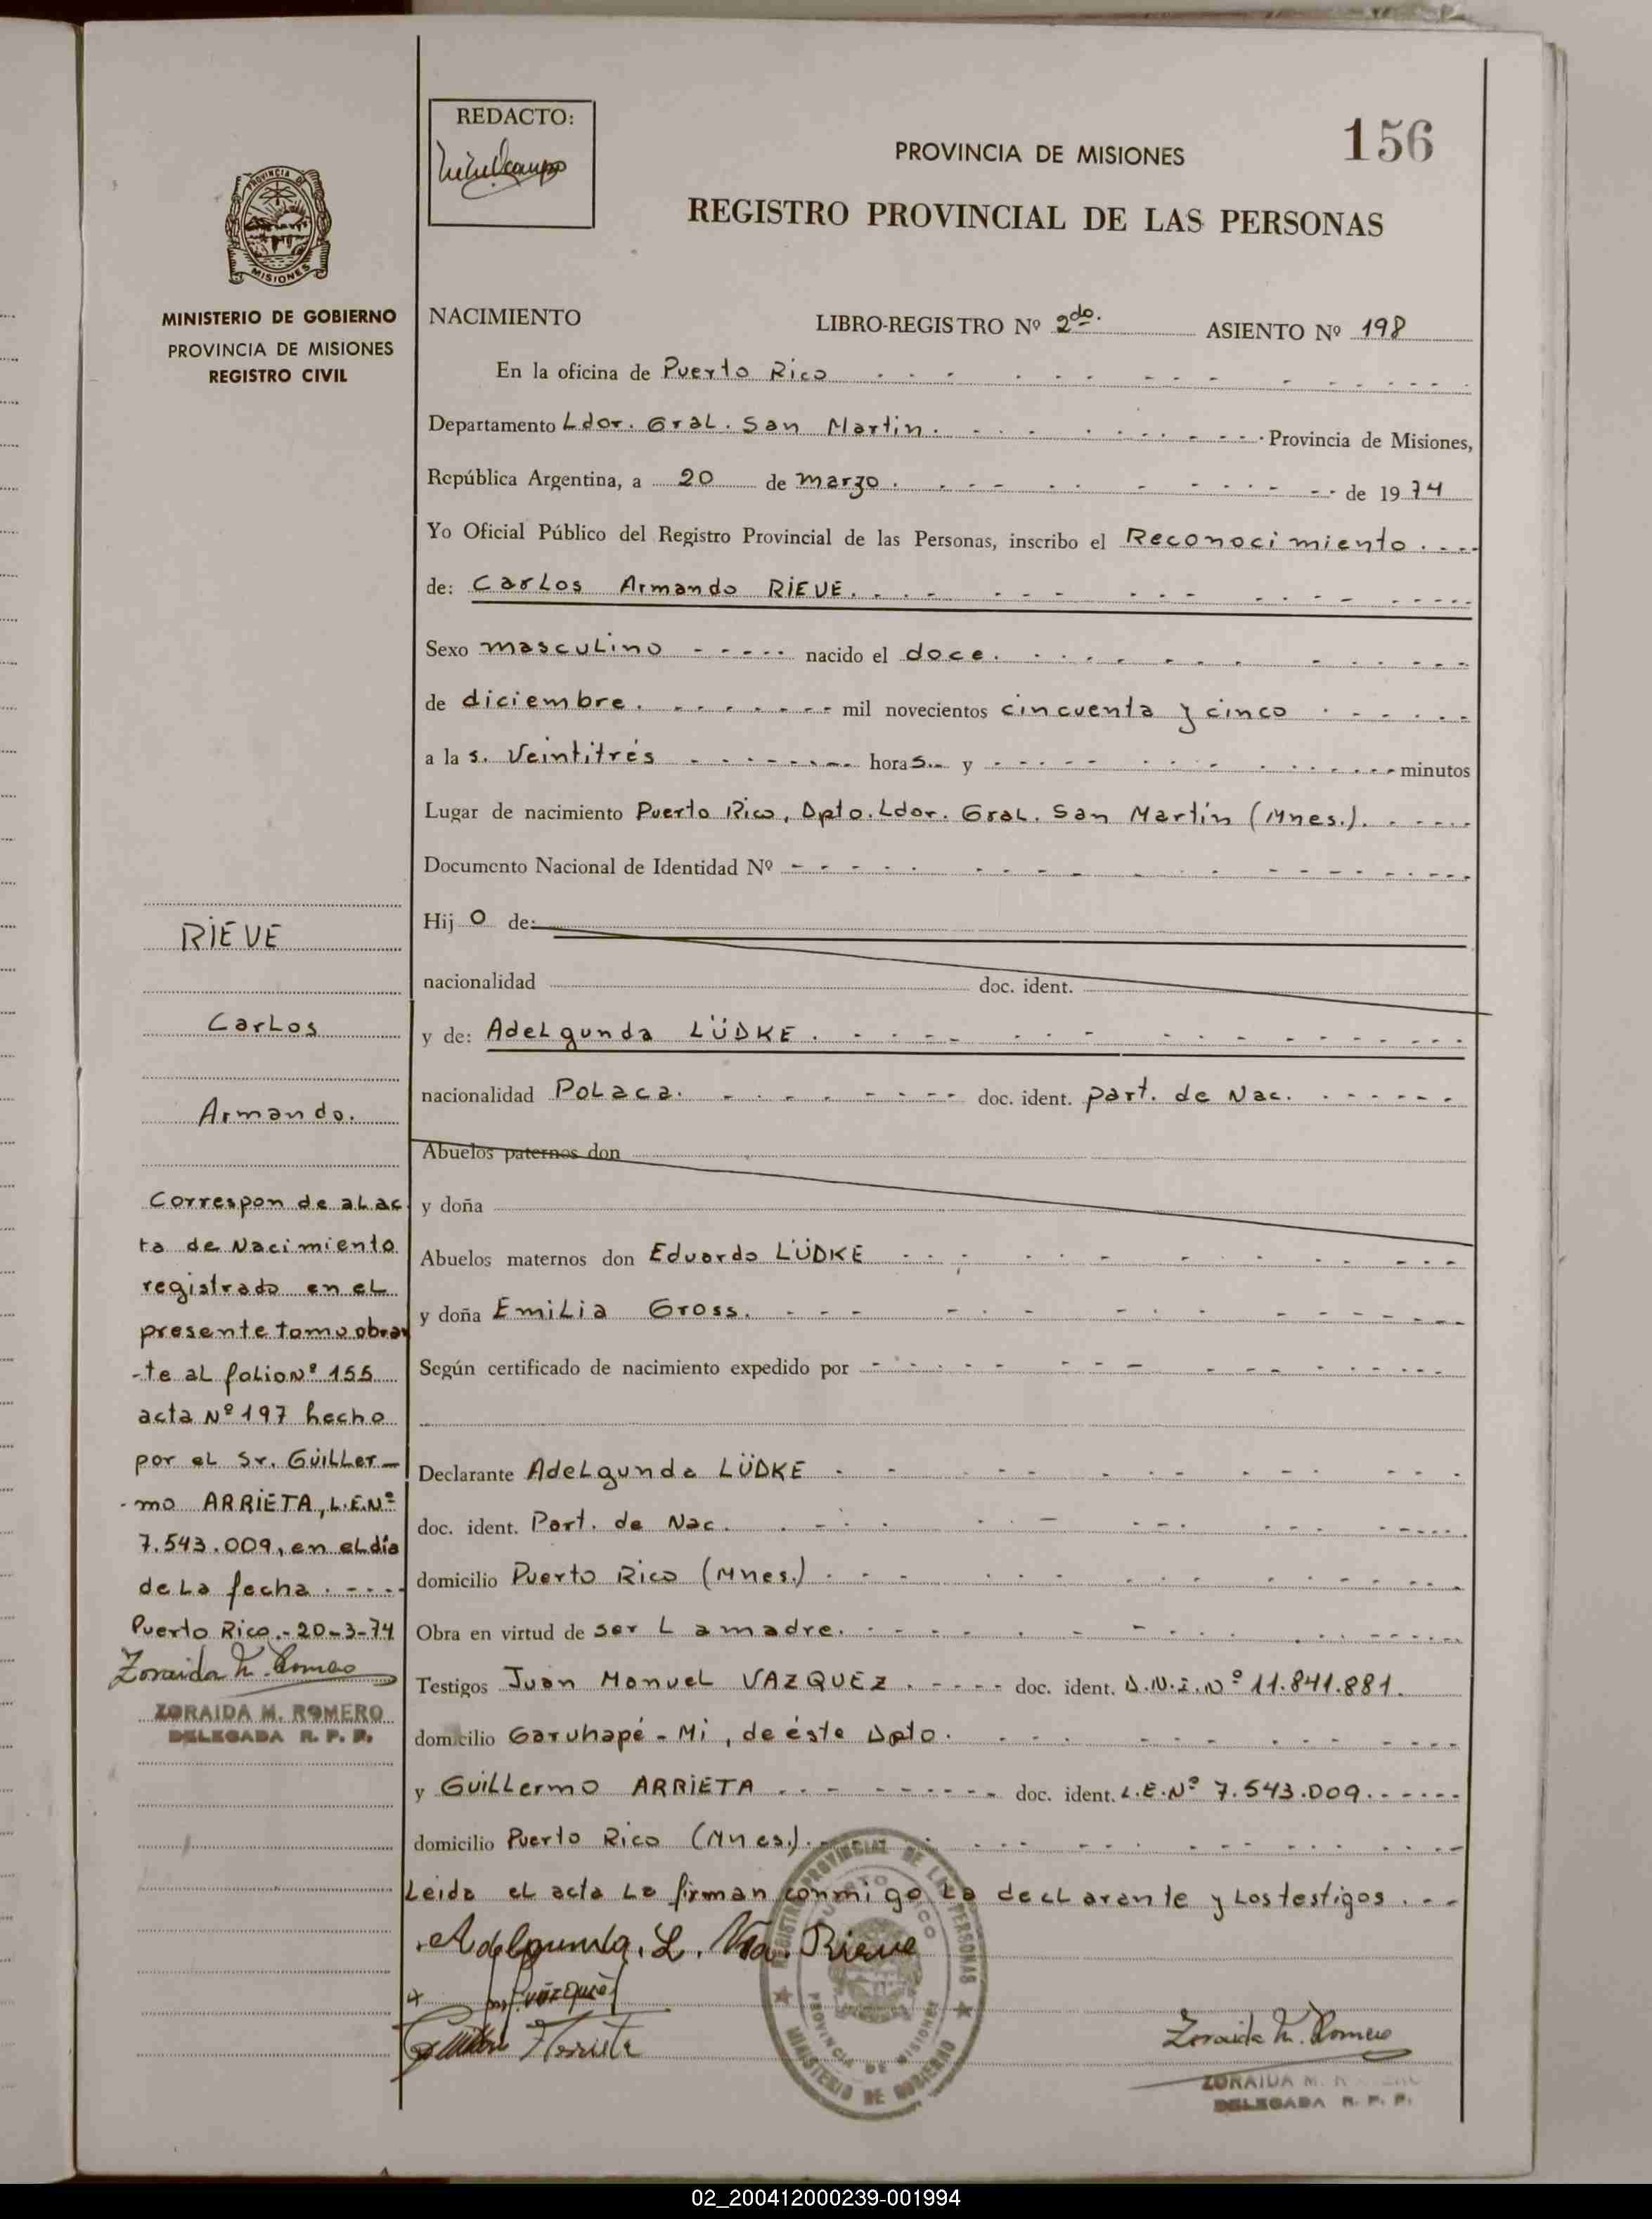 REDACTO:
156
PROVINCIA DE MISIONES
REGISTRO PROVINCIAL DE LAS PERSONAS
PROVINCIA DE
MISIONES
MINISTERIO DE GOBIERNO
PROVINCIA DE MISIONES
REGISTRO CIVIL
NACIMIENTO LIBRO-REGISTRO Nº 2do. ASIENTO Nº 198
En la oficina de Puerto Rico
Departamento Ldor. Gral. San Martin. Provincia de Misiones,
República Argentina, a 20 de marzo. de 1974
Yo Oficial Público del Registro Provincial de las Personas, inscribo el Reconocimiento.
de: Carlos Armando RIEVE.
Sexo masculino nacido el doce.
de diciembre. mil novecientos cincuenta y cinco
a las. Veintitrés horas y minutos
Lugar de nacimiento Puerto Rico, Dpto. Ldor. Gral. San Martín (Mnes.).
Documento Nacional de Identidad Nº
Hijo de:
nacionalidad doc. ident.
y de: Adelgunda LÜDKE.
nacionalidad Polaca. doc. ident. part. de Nac.
Abuelos paternos don
y doña
Abuelos maternos don Eduardo LÜDKE
y doña Emilia Gross.
Según certificado de nacimiento expedido por
Declarante Adelgunda LÜDKE
doc. ident. Part. de Nac.
domicilio Puerto Rico (Mnes.)
Obra en virtud de ser La madre.
Testigos Juan Manuel VAZQUEZ. doc. ident. D.N.I.Nº 11.841.881.
domicilio Garuhapé - Mi, de éste Dpto.
y Guillermo ARRIETA doc. ident. L.E.Nº 7.543.009.
domicilio Puerto Rico (Mnes.).
Leida el acta La firman conmigo La declarante y Los testigos.
Adelgunda. L. Vda. Rieve
RIEVE
Carlos
Armando.
Corresponde al ac
ta de Nacimiento
registrado en el
presente tomo obran
-te al folio Nº 155
acta Nº 197 hecho
por el Sr. Guiller-
-mo ARRIETA, L.E.Nº
7.543.009, en el día
de La fecha.
Puerto Rico.- 20-3-74
Zoraida M. Romero
ZORAIDA M. ROMERO
DELEGADA R. P. P.
REGISTRO PROVINCIAL DE LAS PERSONAS
PUERTO RICO
PROVINCIA DE MISIONES
MINISTERIO DE GOBIERNO
Zoraida M. Romero
ZORAIDA M.
DELEGADA R. P. P.
02_200412000239-001994